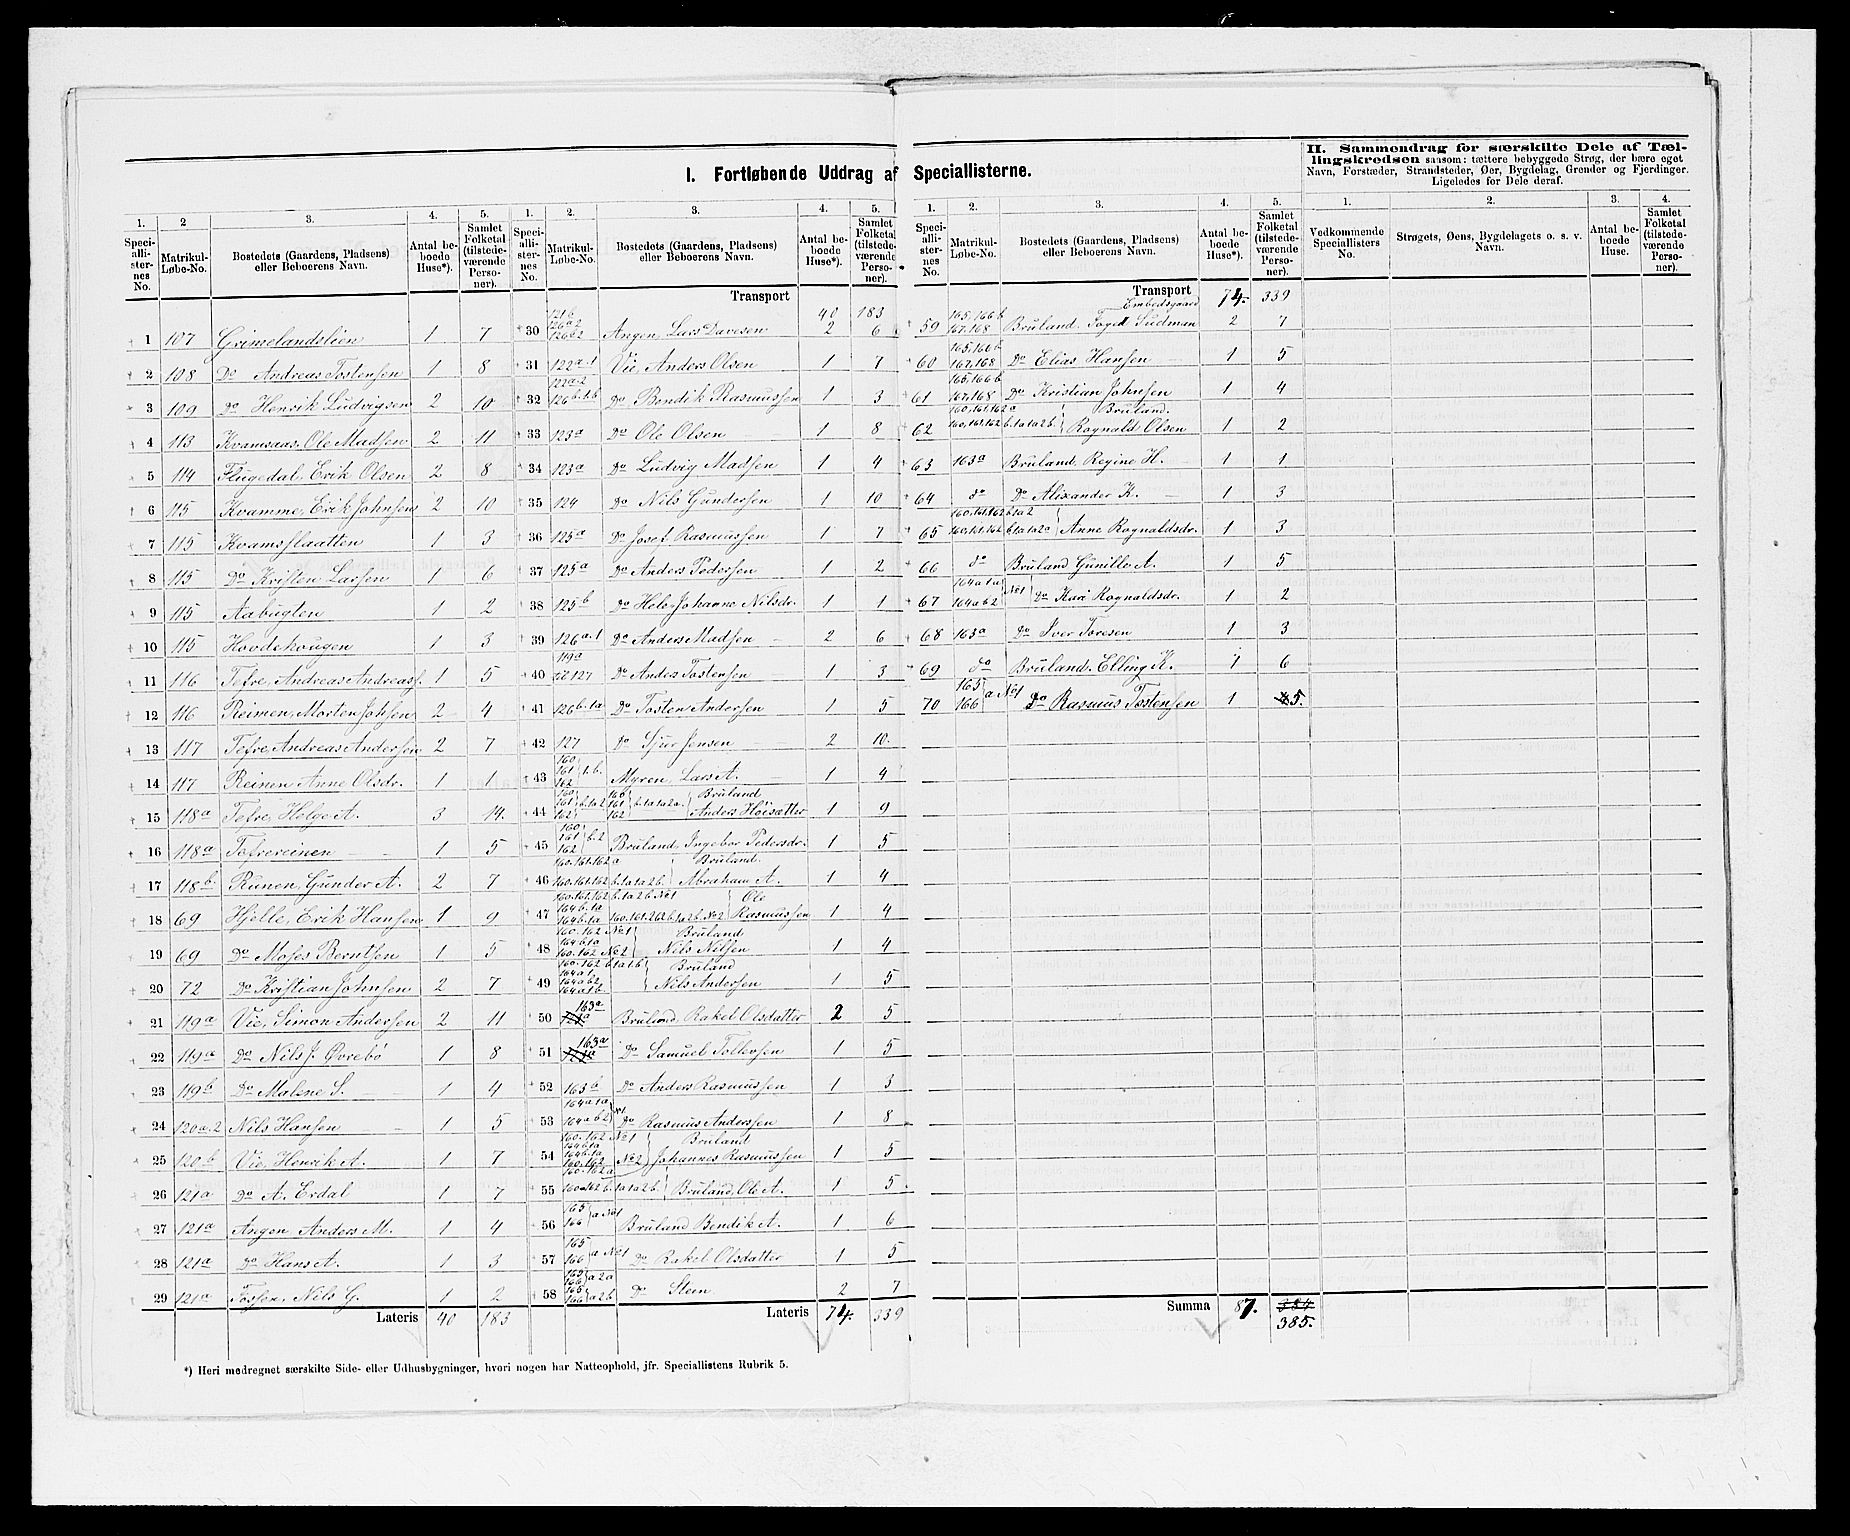 I. Fortløbende Uddrag af Speciallisterne.
II. Sammendrag for særskilte Dele af Tællingskredsen saasom: tættere bebyggede Strøg, der bære eget
Navn, Forstæder, Strandsteder, Øer, Bygdelag, Grender og Fjerdinger.
Ligeledes for Dele deraf.
1. 2 3. 4. 5.
Speciallisternes No. Matrikul-Løbe-No. Bostedets (Gaardens, Pladsens) eller Beboerens Navn. Antal beboede Huse*). Samlet Folketal (tilstedeværende Personer).
1 107 Grimelandslien 1 7
2 108 Do Andreas Tostensen 1 8
3 109 Do Henrik Ludvigsen 2 10
4 113 Kvamsaas, Ole Madsen 2 11
5 114 Flugedal, Erik Olsen 2 8
6 115 Kvamme, Erik Johnsen 2 10
7 115 Kvamsflaatten 1 3
8 115 Do Kristen Larsen 1 6
9 115 Aabugten 1 2
10 115 Hovdehougen 1 3
11 116 Tefre, Andreas Andreass. 1 5
12 116 Reimen, Morten Johsen 2 4
13 117 Tefre, Andreas Andersen 2 7
14 117 Reinen Anne Olsdr. 1 1
15 118a Tefre, Helge A. 3 14.
16 118a Tefrereinen 1 5
17 118b Runen, Gunder A. 2 7
18 69 Hjelle, Erik Hansen 1 9
19 69 Do Moses Berntsen 1 5
20 72 Do Kristian Johnsen 2 7
21 119a Vie, Simon Andersen 2 11
22 119a Do Nils J. Øvrebø 1 8
23 119b Do Malene S. 1 4
24 120a.2 Nils Hansen 1 5
25 120b Vie, Henrik A. 1 7
26 121a Do A. Erdal 1 7
27 121a Angen Anders M. 1 4
28 121a Do Hans A. 1 3
29 121a Fossen, Nils G. 1 2
Lateris 40 183
1. 2. 3. 4. 5.
Speciallisternes No. Matrikul-Løbe-No. Bostedets (Gaardens, Pladsens) eller Beboerens Navn. Antal beboede Huse*). Samlet Folketal (tilstedeværende Personer).
Transport 40 183
30 121b 126a2 126b2 Angen, Lars Davesen 2 6
31 122a.1 Vie, Anders Olsen 1 7
32 122a.2 126b.1.b Do Bendik Rasmussen 1 3
33 123a Do Ole Olsen 1 8
34 123a Do Ludvig Madsen 1 4
35 124 Do Nils Gundersen 1 10
36 125a Do Josef Rasmussen 1 7
37 125a Do Anders Pedersen 1 2
38 125b Do Hele Johanne Nilsdr. 1 1
39 126a.1 Do Anders Madsen 2 6
40 119a 127 Do Anders Tostensen 1 3
41 126b.1a Do Tosten Andersen 1 5
42 127 Do Sjur Jensen 2 10.
43 160 161 162 1.b. Myren, Lars A. 1 4
44 160 161 162 b.1a2 160 161 162 b.1a1a2a. Bruland Anders Høisætter 1 9
45 160 161 162 b.2 Bruland, Ingebor Pedersdr. 1 5
46 160.161.162a 160.161.162 b.1a1a2b. Bruland. Abraham A. 1 4
47 160.161.162 b.1a2b No1 164b.1a 164b.1a 160.161.262 b.1a2b. No2 Ole Rasmussen 1 4
48 160.162 No1 164b1a 160.162 No2 Bruland Nils Nilsen 1 4
49 160.162 b.1a1b 164a1. 164ab2 164a1b Bruland Nils Andersen 1 5
50 163a 121a Bruland, Rakel Olsdatter 2 5
51 163a 121a Do Samuel Tollevsen 1 5
52 163b Do Anders Rasmussen 1 3
53 164a1a 164ab2 No1 Do Rasmus Anderssen 1 8
54 160.162 No1 164b1a 164b.1a 160.162 No2 Bruland Johannes Rasmussen 1 5
55 160.162a 160a162 b.1a1a2b. Bruland, Ole A. 1 5
56 165 166 a No1 Bruland Bendik A. 1 6
57 165 166 a No1 Do Rakel Olsdatter 1 5
58 165 166 a2a 165 166 a2b Do Steen 2 7
Lateris 74. 339
1. 2. 3. 4. 5.
Speciallisternes No. Matrikul-Løbe-No. Bostedets (Gaardens, Pladsens) eller Beboerens Navn. Antal beboede Huse*). Samlet Folketal (tilstedeværende Personer).
Transport 74. 339
Embedsgaard
59 165,166b 167,168 Bruland. Foged Sudman 2 7
60 165,166b 167,168 Do Elias Hansen 1 5
61 165,166b 167,168 Do Kristian Johnsen 1 4
62 160,161,162a 160,161,162 b.1a1a2b Bruland. Rognald Olsen 1 2
63 163a Bruland, Regine H. 1 1
64 do Do Alixander K. 1 3
65 160,161,162b1a2 160,161,16b b.1a1a2a Anne Rognaldsdr. 1 3
66 do Bruland Gunille A. 1 5
67 164a1a 164ab2 No1 Do Kari Rognaldsdr. 1 2
68 163a Do Iver Toresen 1 3
69 do Bruland. Elling K. 1 6
70 165 166 a No1 Do Rasmus Tostensen 1 5.
Summa 87. 384
385.
1. 2. 3. 4.
Vedkommende Speciallisters No. Strøgets, Øens, Bygdelagets o. s. v. Navn. Antal beboede Huse. Samlet Folketal (tilstedeværende Personer).
*) Heri medregnet særskilte Side- eller Udhusbygninger, hvori nogen har Natteophold, jfr. Speciallistens Rubrik 5.